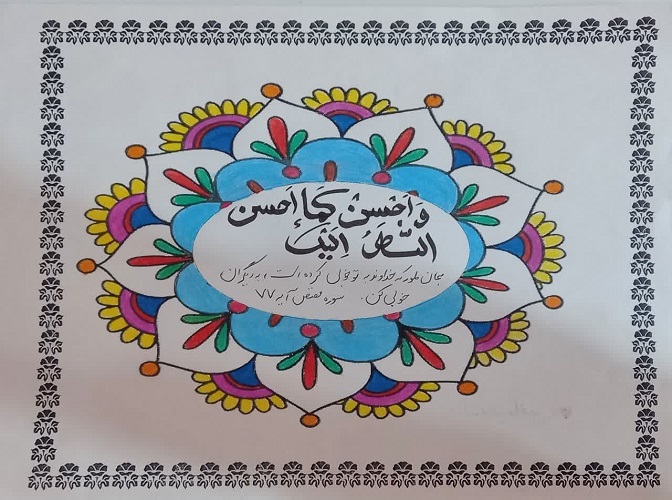 وَأَحْسِنْ كَمَا أَحسن
اللّهُ إِلَيْكَ
همان طور که خداوند به تو خوبی کرده است، به دیگران
خوبی کن. سوره قصص آیه ۷۷